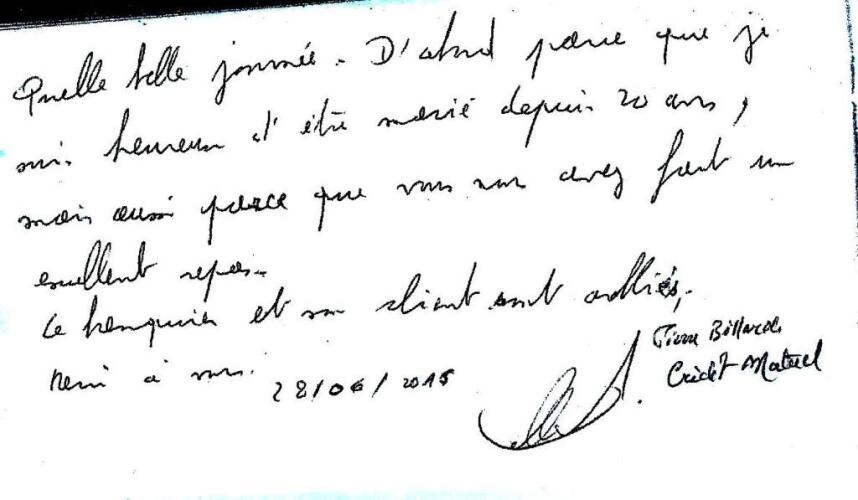 Quelle belle journée. D'abord parce que je
suis heureux d'être marié depuis 20 ans,
mais aussi parce que vous nous avez fait un
excellent repas.
Le banquier et son client sont
Merci à vous. 28/06/2015
Pierre
Crédit Mutuel